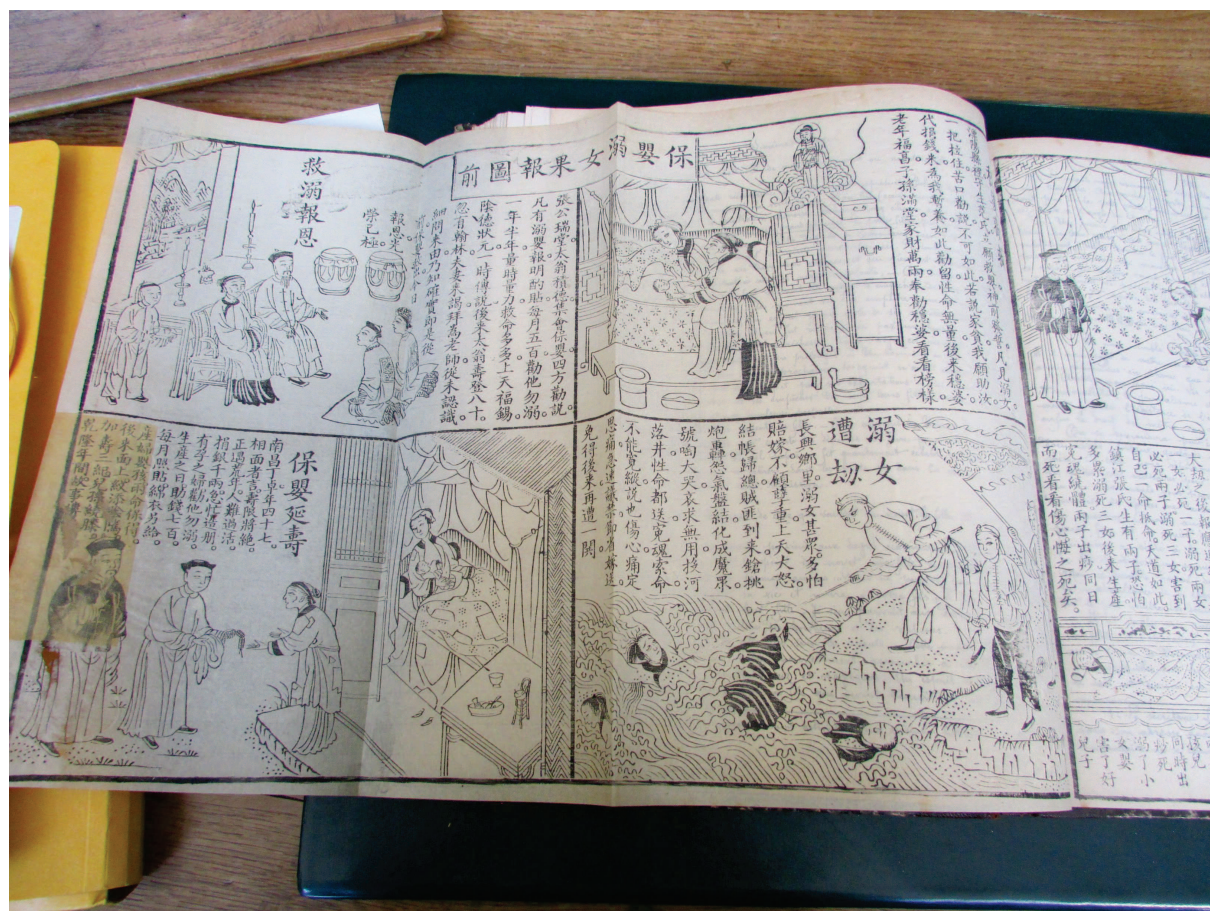 保嬰溺女果報圖前
願救嬰神前發誓凡見溺女
一把按住苦口勸諺不可如此若說家貧我願助汝
代損錢米為我暫養如此勸留性命無量後來穩婆。
老年福高子孫滿堂家財萬兩奉勸穩婆看看榜樣
救溺報恩
張公瑞堂太翁積德集會保嬰四方勸說。
凡有溺嬰報明酌貼每月五百勸他勿溺
一年半年量時量力救命多多上天福錫
陰德狀元一時傳說後來太翁壽登八十。
忽有翰林夫妻來謁拜為老師從未認識
細問來由乃知確實即是從
今日
報恩
榮已極
溺女遭劫
長興鄉里溺女甚眾多怕
賠嫁不顧孽重上天大怒
結帳歸總賊匪到來鎗挑
炮轟煞氣盤結化成魔祟
號啕大哭哀求無用投河
落井性命都送冤魂索命
不能寬縱說也傷心痛定
思痛急速
免得後來再遭一闋
保嬰延壽
南昌丁卓年四十七。
相面者言壽限將絕。
正遇荒年人難過活
捐銀千兩急忙造册
有孕之婦勸他勿溺
生產之日助錢七百。
每月照貼綿衣另給。
產婦嬰孩兩命保得。
後來面上紋添陰騭
加壽三紀兒孫繞膝。
乾隆年間故事
之後報應
一女必死一子溺死兩女
必死兩子溺死三女害到
自己一命抵償天道如此。
鎮江張氏生有兩子恐怕
多累溺死三女後來生產
冤魂纏體兩子出痧同日
而死看看傷心悔之死矣
孩兒
同時出
痧死
溺了小
女嬰
害了好
兒子